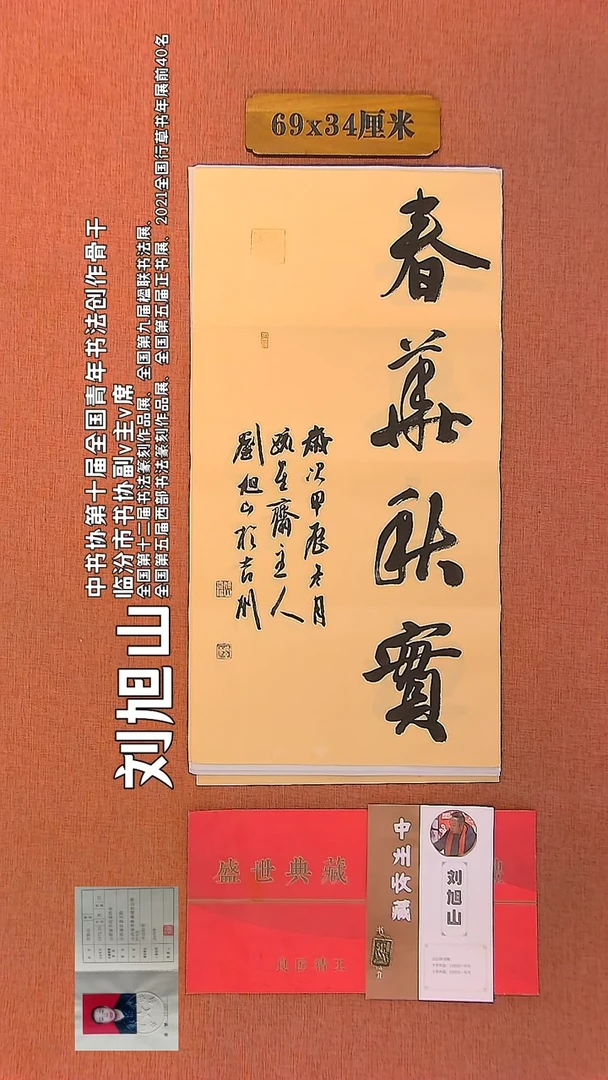 69x34厘米
春華秋實
歲次甲辰冬月
齋主人
劉旭山於吉州
中书协第十届全国青年书法创作骨干
临汾市书协副v主v席
全国第十二届书法篆刻作品展、全国第九届楹联书法展、
全国第五届西部书法篆刻作品展、全国第五届正书展、2021全国行草书年展前40名
刘旭山
盛世典藏
中州收藏
刘旭山